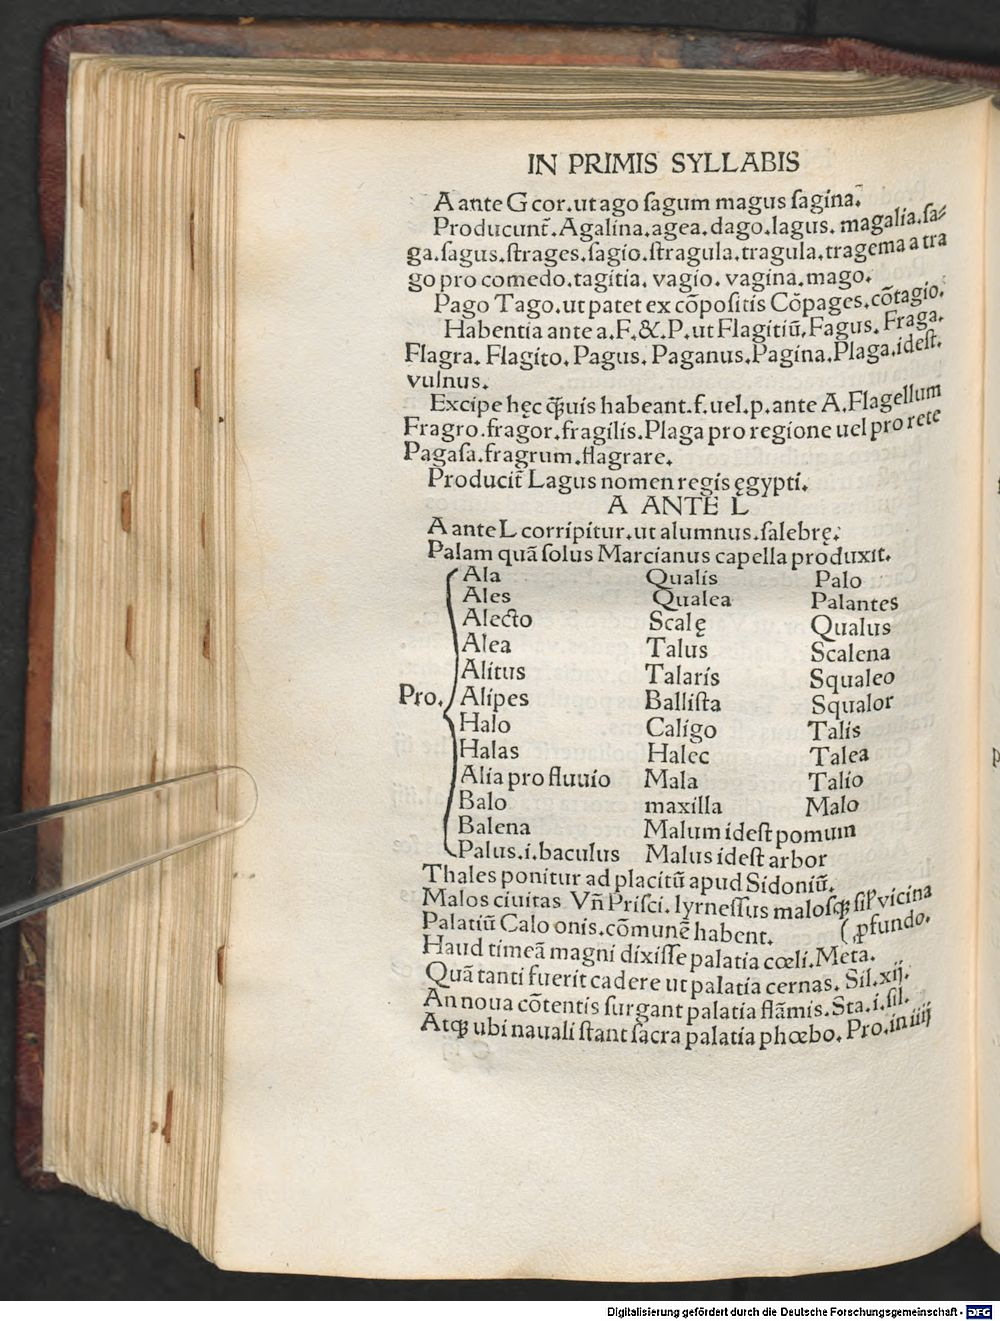 IN PRIMIS SYLLABIS
A ante G cor.ut ago ſagum magus ſagina.
Producunt̃.Agalina.agea.dago.lagus.magalia.ſa⸗
ga.ſagus.ſtrages.ſagio.ſtragula.tragula.tragema a tra
go pro comedo.tagitia.vagio.vagina.mago.
Pago Tago.ut patet ex cõpoſitis Cõpages.cõtagio.
Habentia ante a.F.&.P.ut Flagitiũ.Fagus.Fraga.
Flagra.Flagito.Pagus.Paganus.Pagina.Plaga.ideſt.
vulnus.
Excipe hęc ꝙ̃uis habeant.f.uel.p.ante A.Flagellum
Fragro.fragor.fragilis.Plaga pro regione uel pro rete
Pagaſa.fragrum.flagrare.
Producit̃ Lagus nomen regis ęgypti.
A ANTE L
A ante L corripitur.ut alumnus.ſalebrę.
Palam quã ſolus Marcianus capella produxit.
Ala Qualis Palo
Ales Qualea Palantes
Alecto Scalę Qualus
Alea Talus Scalena
Alitus Talaris Squaleo
Pro. Alipes Balliſta Squalor
Halo Caligo Talis
Halas Halec Talea
Alia pro fluuio Mala Talio
Balo maxilla Malo
Balena Malum ideſt pomum
Palus.i.baculus Malus ideſt arbor
Thales ponitur ad placitũ apud Sidoniũ.
Malos ciuitas Vñ Priſci.lyrneſſus maloſqꝫ ſil̃ vicina
Palatiũ Calo onis.cõmunẽ habent. (ꝓfundo.
Haud timeã magni dixiſſe palatia cœli.Meta.
Quã tanti fuerit cadere ut palatia cernas.Sil.xij.
An noua cõtentis ſurgant palatia flãmis.Sta.i.ſil.
Atqꝫ ubi nauali ſtant ſacra palatia phœbo.Pro.in iiij
Digitalisierung gefördert durch die Deutsche Forschungsgemeinschaft - DFG